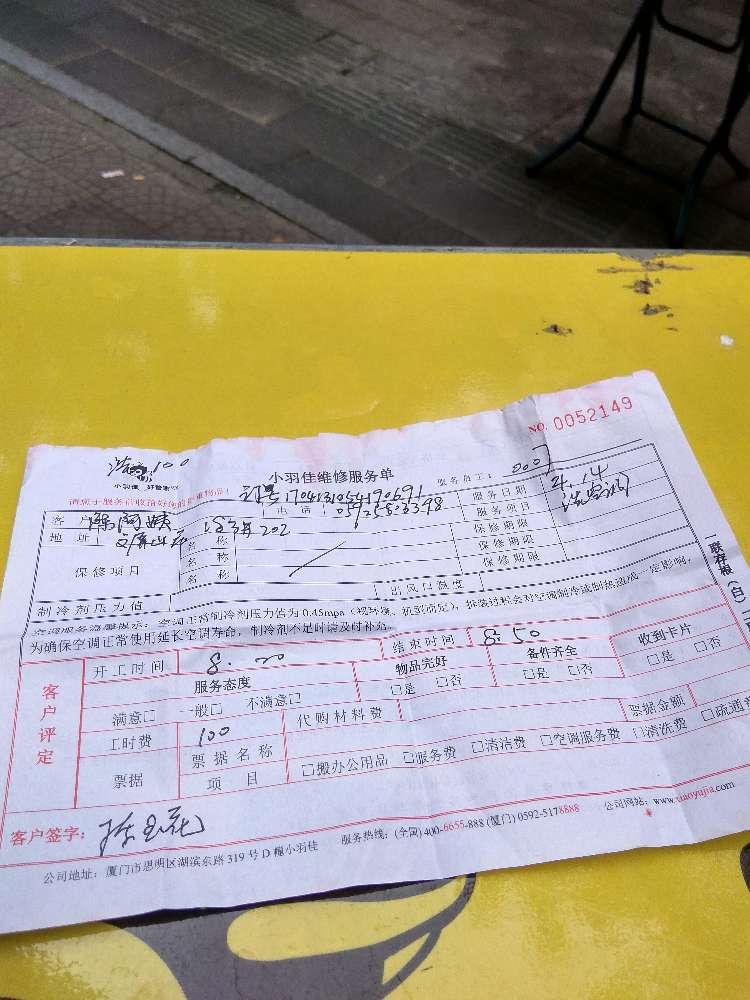 NO. 0052149
100
小羽佳维修服务单
小羽佳 好管家
服务员工：
订号1704131054190691
服务日期 4.14
客户 陈阿姨
电话：
服务项目 洗空调
地址
202
名称
保修期限
保修项目 名称
保修期限
名称
保修期限
制冷剂压力值
出风口温度
为确保空调正常使用延长空调寿命，制冷剂不足时请及时补充。
一联存根（白）
客户评定
开工时间 8:00
结束时间 8:50
服务态度
物品完好
备件齐全
收到卡片
满意□ 一般□ 不满意□
□是 □否
□是 □否
□是 □否
工时费 100
代购材料费
票据
票据名称
票据金额
项目
□搬办公用品 □服务费 □清洁费 □空调服务费 □清洗费
客户签字：
公司地址：厦门市思明区湖滨东路 319 号 D 幢小羽佳
服务热线：(全国) 400-6655-888 (厦门) 0592-5178888
公司网站：www.xiaoyujia.com